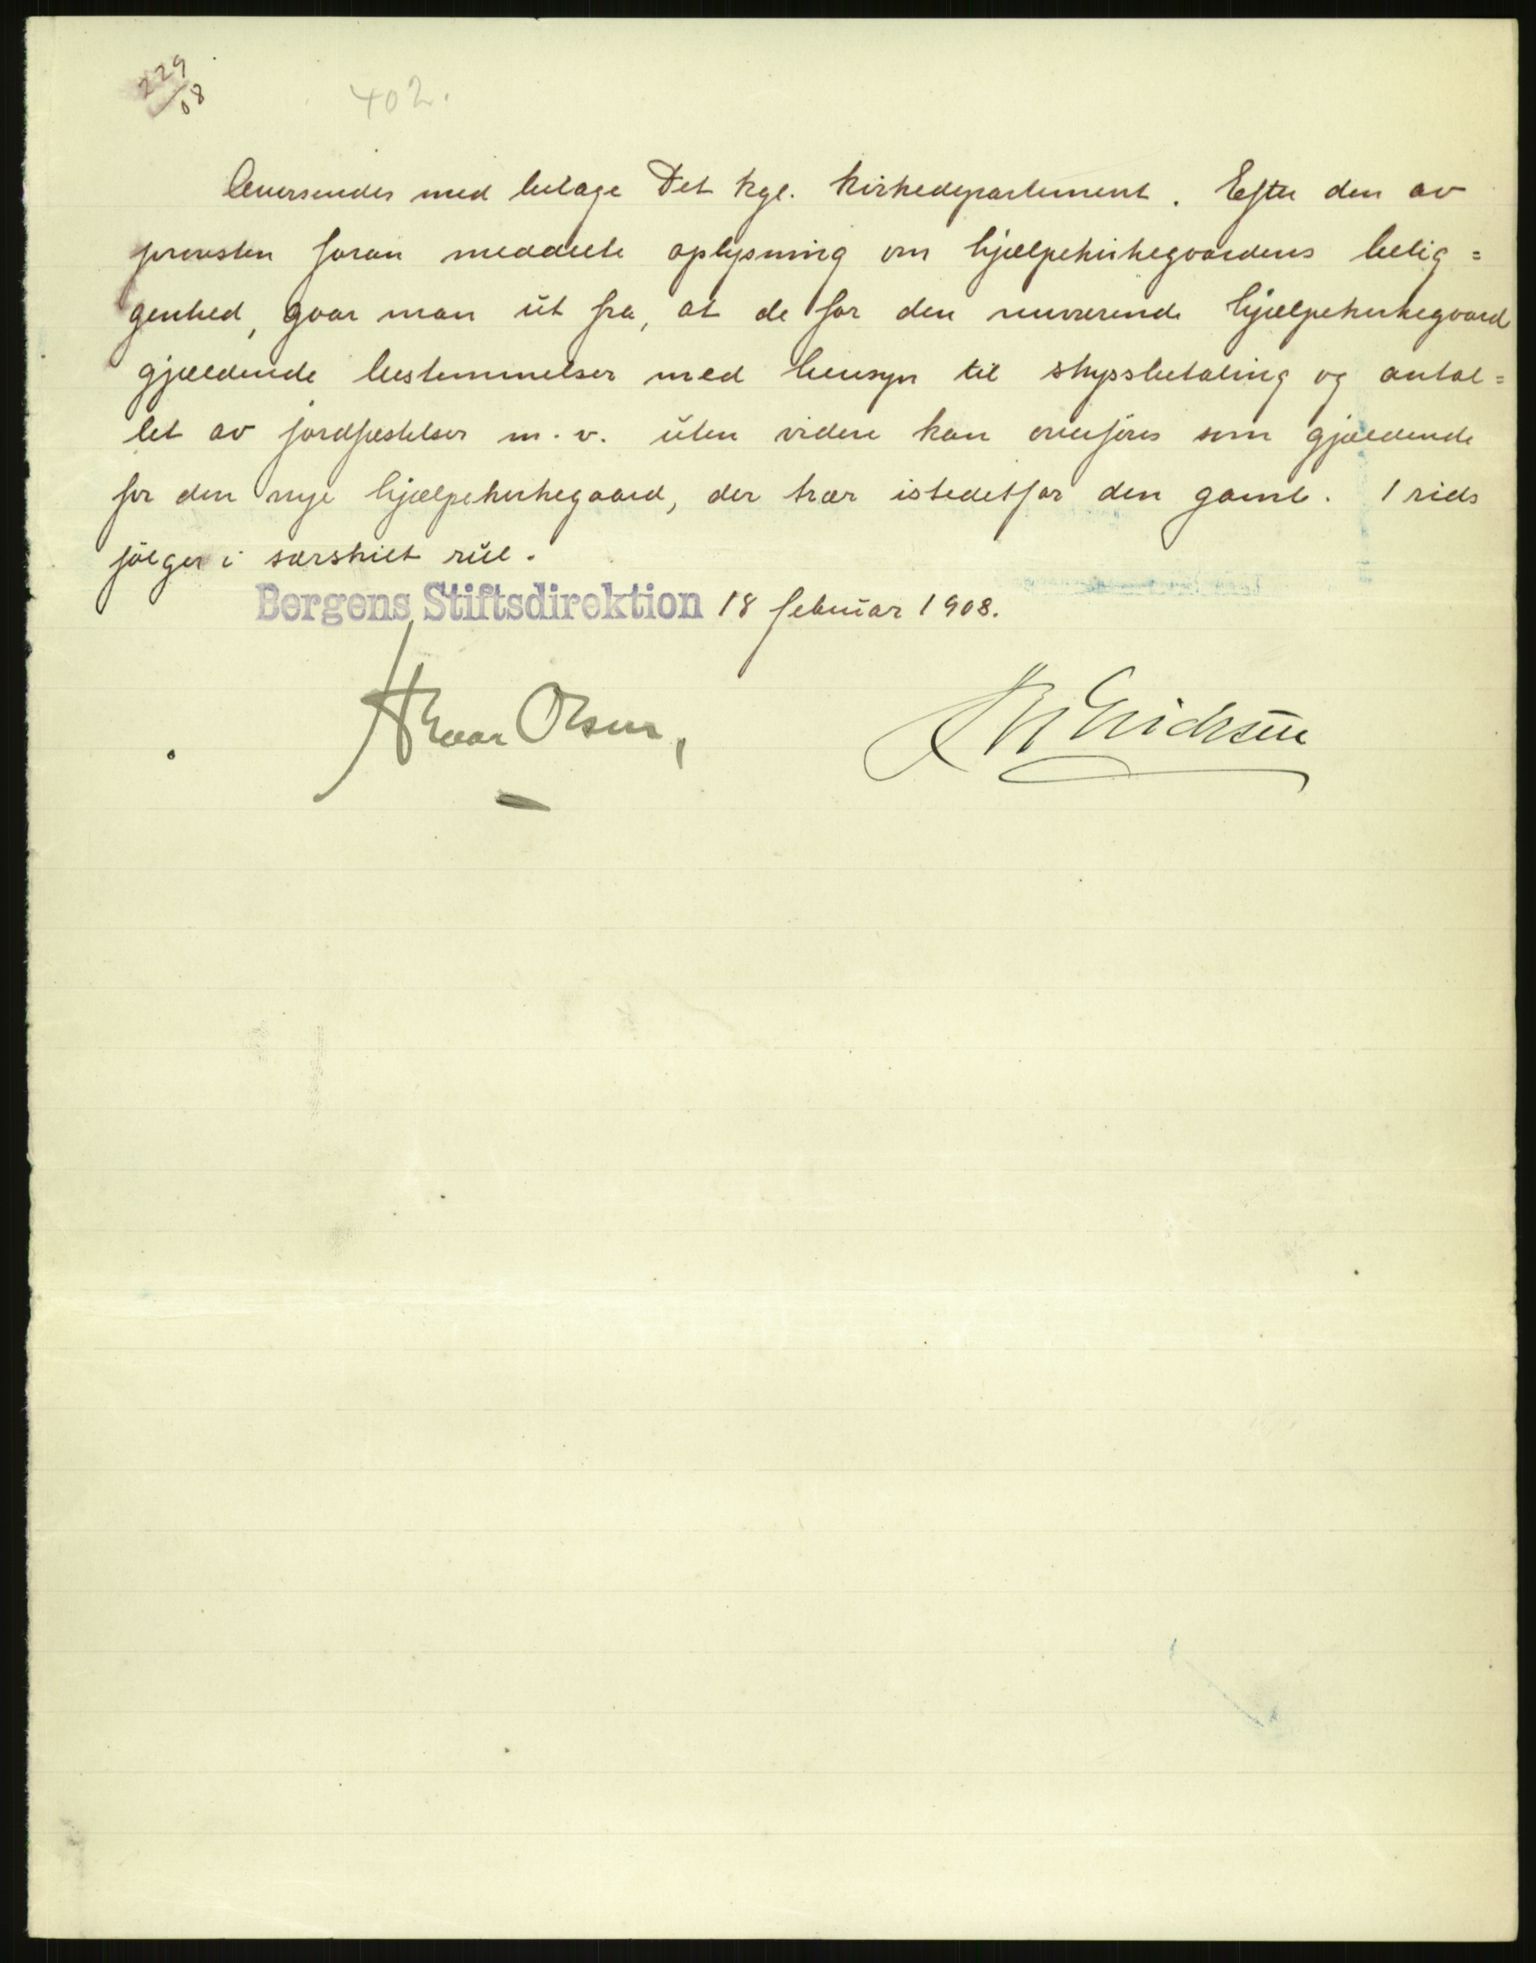 229/08
402.
Oversendes med bilage Det kgl. kirkedepartement. Efter den av
provsten foran meddelte oplysning om hjælpekirkegaardens belig=
genhed, gaar man ut fra, at de for den nuværende hjælpekirkegaard
gjældende bestemmelser med hensyn til skyssbetaling og antal=
let av jordfæstelser m. v. uten videre kan overføres som gjældende
for den nye hjælpekirkegaard, der trær istedetfor den gamle. 1 rids
følger i særskilt rul.
Bergens Stiftsdirektion 18 februar 1908.
Olsen, Erichsen